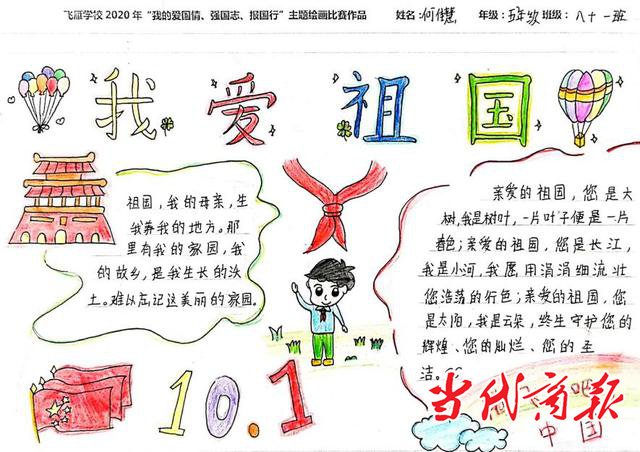 飞雁学校2020年“我的爱国情、强国志、报国行”主题绘画比赛作品 姓名:何佳慧 年级:五年级 班级:八十一班
我爱祖国
祖国,我的母亲,生
我养我的地方。那
里有我的家园,我
的故乡,是我生长的沃
土。难以忘记这美丽的家园。
亲爱的祖国,您是大
树,我是树叶,一片叶子便是一片
春色;亲爱的祖国,您是长江,
我是小河,我愿用涓涓细流壮
您浩荡的行色;亲爱的祖国,您
是太阳,我是云朵,终生守护您的
辉煌、您的灿烂、您的圣
洁。
10.1
当代商报
中国